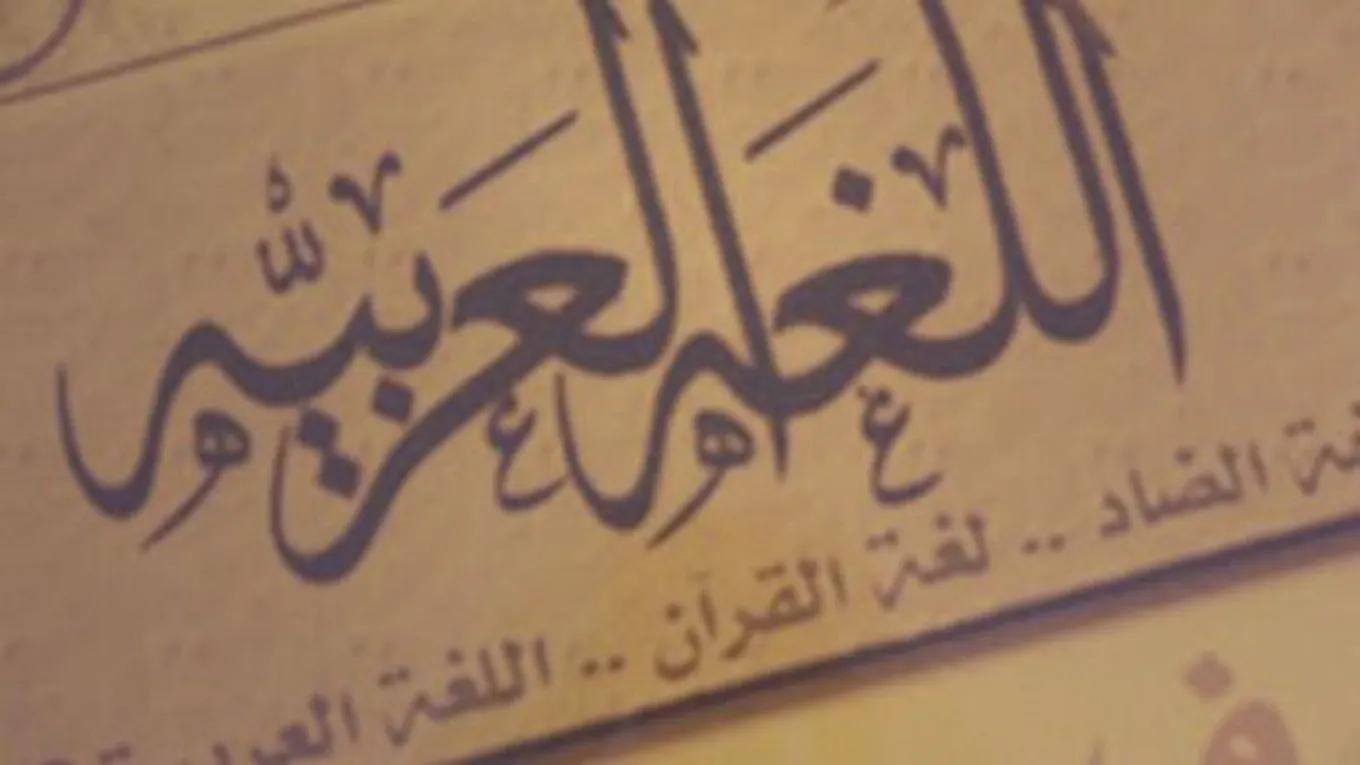 اللغه العربيه
لغة الضاد .. لغة القرآن .. اللغة العربية